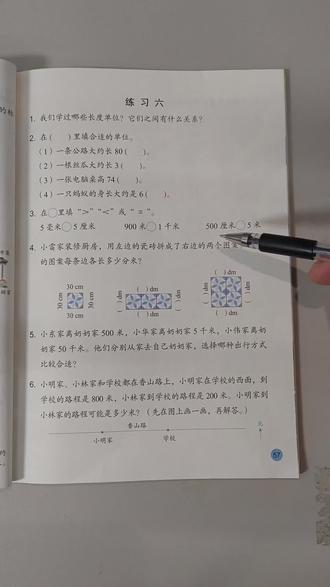 练习六
1. 我们学过哪些长度单位？它们之间有什么关系？
2. 在（ ）里填合适的单位。
（1）一条公路大约长 80（ ）。
（2）一根丝瓜大约长 3（ ）。
（3）一张电脑桌高 74（ ）。
（4）一只蚂蚁的身长大约是 6（ ）。
3. 在○里填“>”“<”或“=”。
5 毫米○5 厘米 900 米○1 千米 500 厘米○5 米
4. 小雷家装修厨房，用左边的瓷砖拼成了右边的两个图案
的图案每条边各长多少分米？
30 cm
30 cm
30 cm
30 cm
（ ）dm
（ ）dm
（ ）dm
（ ）dm
（ ）dm
（ ）dm
（ ）dm
（ ）dm
5. 小东家离奶奶家 500 米，小华家离奶奶家 5 千米，小伟家离奶
奶家 50 千米。他们分别从家去自己奶奶家，选择哪种出行方式
比较合适？
6. 小明家、小林家和学校都在香山路上，小明家在学校的西面，到
学校的路程是 800 米，小林家到学校的路程是 200 米。小明家到
小林家的路程可能是多少米？（先在图上画一画，再解答。）
香山路
北
小明家 学校
57